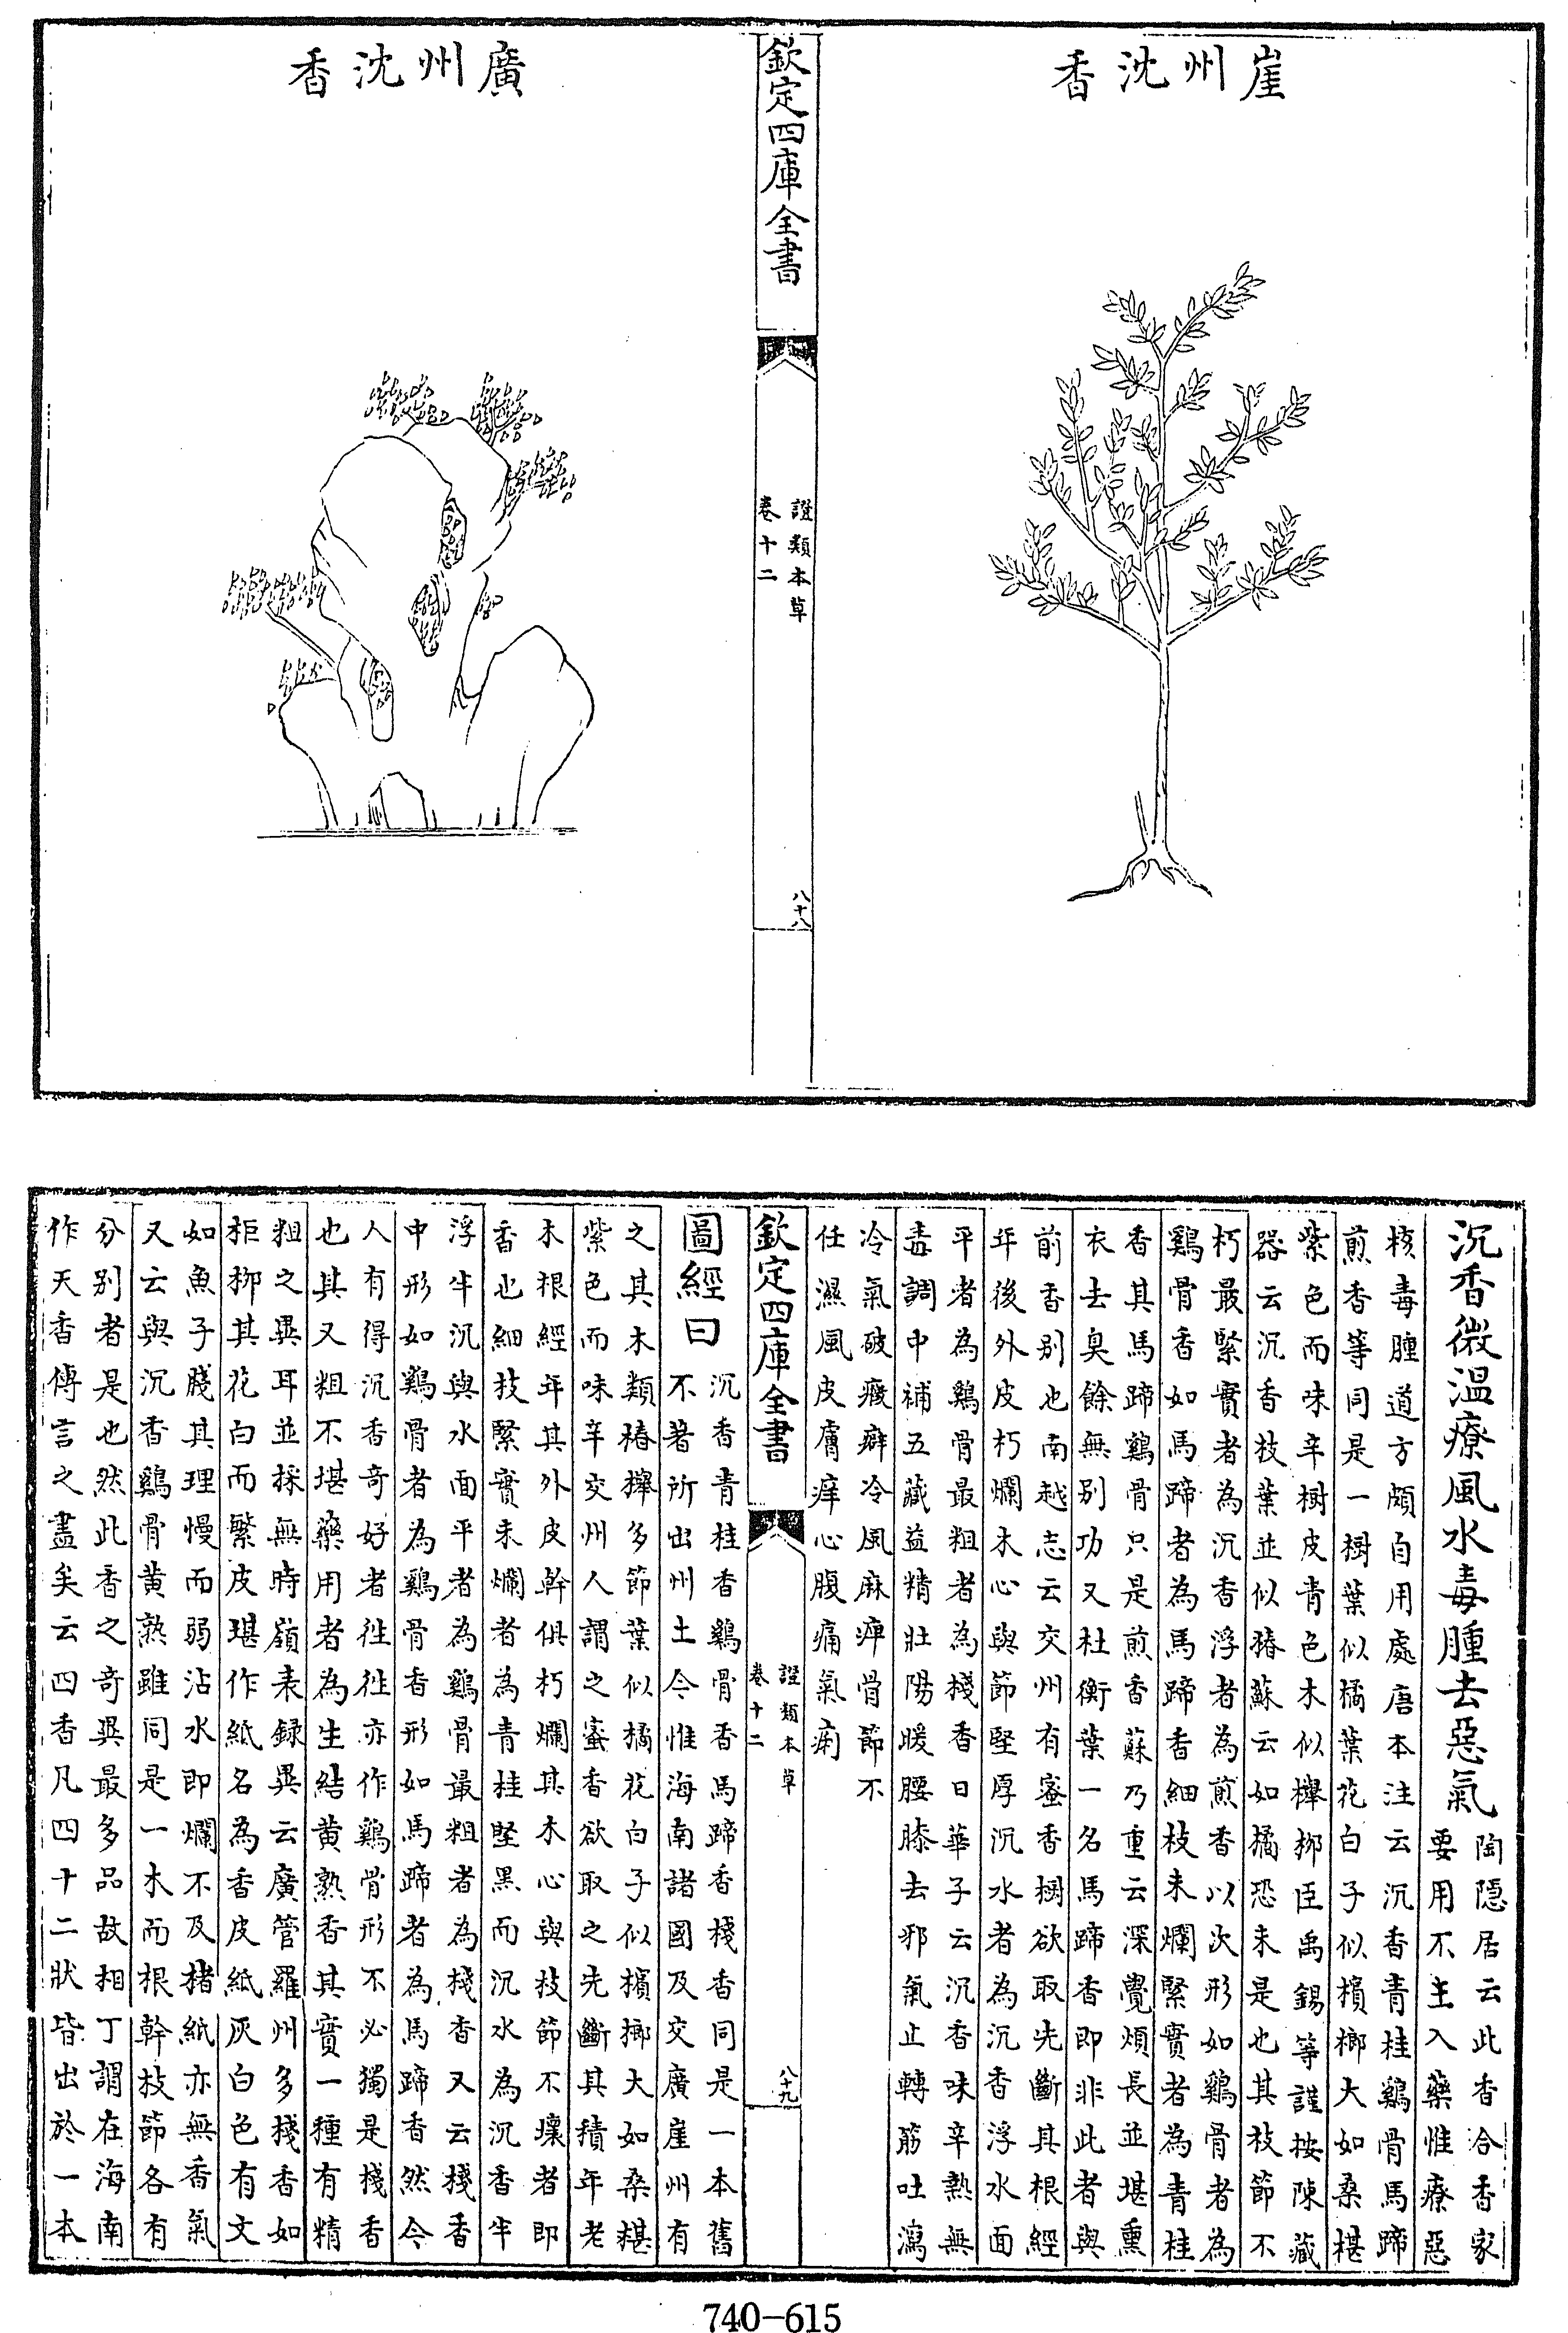 崖州沈香
欽定四庫全書
證類本草
卷十二
八十八
廣州沈香
沉香微溫療風水毒腫去惡氣
陶隠居云此香合香家
要用不主入藥惟療惡
核毒腫道方頗自用處唐本注云沉香青桂鷄骨馬蹄
煎香等同是一樹葉似橘葉花白子似檳榔大如桑椹
紫色而味辛樹皮青色木似櫸柳臣禹錫等謹按陳藏
器云沉香枝葉並似椿蘇云如橘恐未是也其枝節不
朽最緊實者為沉香浮者為煎香以次形如鷄骨者為
鷄骨香如馬蹄者為馬蹄香細枝未爛緊實者為青桂
香其馬蹄鷄骨只是煎香蘇乃重云深覺煩長並堪熏
衣去臭餘無別功又杜衡葉一名馬蹄香即非此者與
前香别也南越志云交州有蜜香樹欲取先斷其根經
年後外皮朽爛木心與節堅厚沉水者為沉香浮水面
平者為鷄骨最粗者為棧香日華子云沉香味辛熱無
毒調中補五藏益精壯陽暖腰膝去邪氣止轉筋吐瀉
冷氣破癥癖冷風麻痺骨節不
任濕風皮膚痒心腹痛氣痢
欽定四庫全書
證類本草
卷十二
八十九
圖經曰
沉香青桂香鷄骨香馬蹄香棧香同是一本舊
不著所出州土今惟海南諸國及交廣崖州有
之其木類椿櫸多節葉似橘花白子似檳榔大如桑椹
紫色而味辛交州人謂之蜜香欲取之先斷其積年老
木根經年其外皮幹俱朽爛其木心與枝節不壞者即
香也細枝緊實未爛者為青桂堅黑而沉水為沉香半
浮半沉與水面平者為鷄骨最粗者為棧香又云棧香
中形如鷄骨者為鷄骨香形如馬蹄者為馬蹄香然今
人有得沉香竒好者往往亦作鷄骨形不必獨是棧香
也其又粗不堪藥用者為生結黄熟香其實一種有精
粗之異耳並採無時嶺表録異云廣管羅州多棧香如
柜栁其花白而繁皮堪作紙名為香皮紙灰白色有文
如魚子牋其理慢而弱沾水即爛不及楮紙亦無香氣
又云與沉香鷄骨黄熟雖同是一木而根幹枝節各有
分别者是也然此香之竒異最多品故相丁謂在海南
作天香傳言之盡矣云四香凡四十二狀皆出於一本
740-615